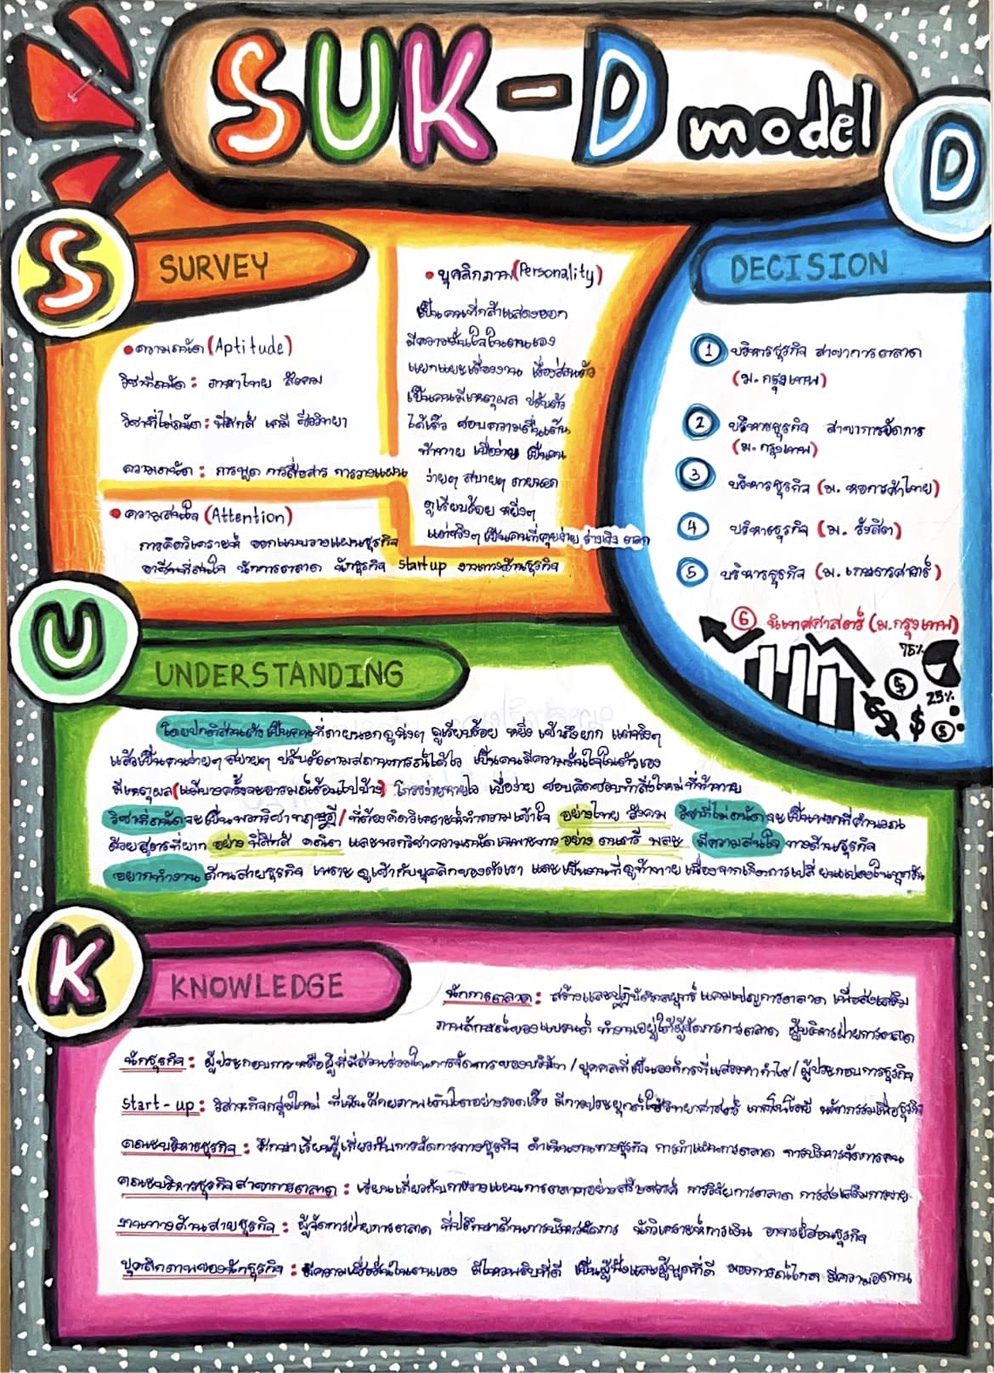 SUK-D model
S
SURVEY
• ความถนัด (Aptitude)
วิชาที่ถนัด : ภาษาไทย สังคม
วิชาที่ไม่ถนัด : ฟิสิกส์ เคมี ชีววิทยา
ความถนัด : การพูด การสื่อสาร การวางแผน
• ความสนใจ (Attention)
การคิดวิเคราะห์ ออกแบบวางแผนธุรกิจ
อาชีพที่สนใจ นักการตลาด นักธุรกิจ startup งานทางด้านธุรกิจ
• บุคลิกภาพ (Personality)
เป็นคนที่กล้าแสดงออก
มีความมั่นใจในตนเอง
แยกแยะเรื่องงาน เรื่องส่วนตัว
เป็นคนมีเหตุผล ปรับตัว
ได้เร็ว ชอบความตื่นเต้น
ท้าทาย เบื่อง่าย เป็นคน
ง่ายๆ สบายๆ ภายนอก
ดูเรียบร้อย หยิ่งๆ
แต่จริงๆ เป็นคนที่คุยง่าย ร่าเริง ตลก
D
DECISION
1 บริหารธุรกิจ สาขาการตลาด
(ม.กรุงเทพ)
2 บริหารธุรกิจ สาขาการจัดการ
(ม.กรุงเทพ)
3 บริหารธุรกิจ (ม. หอการค้าไทย)
4 บริหารธุรกิจ (ม. รังสิต)
5 บริหารธุรกิจ (ม. เกษตรศาสตร์)
6 นิเทศศาสตร์ (ม.กรุงเทพ)
75%
25%
U
UNDERSTANDING
โดยปกติส่วนตัวเป็นคนที่ภายนอกดูนิ่งๆ ดูเรียบร้อย หยิ่ง เข้าถึงยาก แต่จริงๆ
แล้วเป็นคนง่ายๆ สบายๆ ปรับตัวตามสถานการณ์ได้เร็ว เป็นคนมีความมั่นใจในตัวเอง
มีเหตุผล (แต่บางครั้งจะอารมณ์ร้อนไปบ้าง) โกรธง่ายหายไว เบื่อง่าย ชอบคิดชอบทำสิ่งใหม่ที่ท้าทาย
วิชาที่ถนัดจะเป็นพวกวิชาทฤษฎี/ที่ต้องคิดวิเคราะห์ทำความเข้าใจ อย่างไทย สังคม วิชาที่ไม่ถนัดจะเป็นพวกที่คำนวณ
ด้วยสูตรที่ยาก อย่างฟิสิกส์ คณิต และพวกวิชาความถนัดเฉพาะทาง อย่าง ดนตรี พละ มีความสนใจทางด้านธุรกิจ
อยากทำงานด้านสายธุรกิจ เพราะดูเข้ากับบุคลิกของตัวเรา และเป็นงานที่ดูท้าทาย เนื่องจากเกิดการเปลี่ยนแปลงในทุกวัน
K
KNOWLEDGE
นักการตลาด : สร้างและปฏิบัติกลยุทธ์ แคมเปญการตลาด เพื่อส่งเสริม
ภาพลักษณ์ของแบรนด์ ทำงานอยู่ใต้ผู้จัดการการตลาด ผู้บริหารฝ่ายการตลาด
นักธุรกิจ : ผู้ประกอบการหรือผู้ที่มีส่วนร่วมในการจัดการของบริษัท / บุคคลที่เป็นองค์กรที่แสวงหากำไร / ผู้ประกอบการธุรกิจ
start-up : วิสาหกิจกลุ่มใหม่ ที่เน้นศักยภาพเติบโตอย่างรวดเร็ว มีการประยุกต์ใช้วิทยาศาสตร์ เทคโนโลยี นวัตกรรมเพื่อธุรกิจ
คณะบริหารธุรกิจ : ศึกษาเรียนรู้เกี่ยวกับการจัดการทางธุรกิจ ดำเนินงานทางธุรกิจ การทำแผนการตลาด การบริหารจัดการคน
คณะบริหารธุรกิจสาขาการตลาด : เรียนเกี่ยวกับการวางแผนการตลาดอย่างสร้างสรรค์ การวิจัยการตลาด การส่งเสริมการขาย
งานทางด้านสายธุรกิจ : ผู้จัดการฝ่ายการตลาด ที่ปรึกษาด้านการบริหารจัดการ นักวิเคราะห์การเงิน อาจารย์สอนธุรกิจ
บุคลิกภาพของนักธุรกิจ : มีความเชื่อมั่นในตนเอง มีไหวพริบที่ดี เป็นผู้ฟังและผู้พูดที่ดี มองการณ์ไกล มีความอดทน